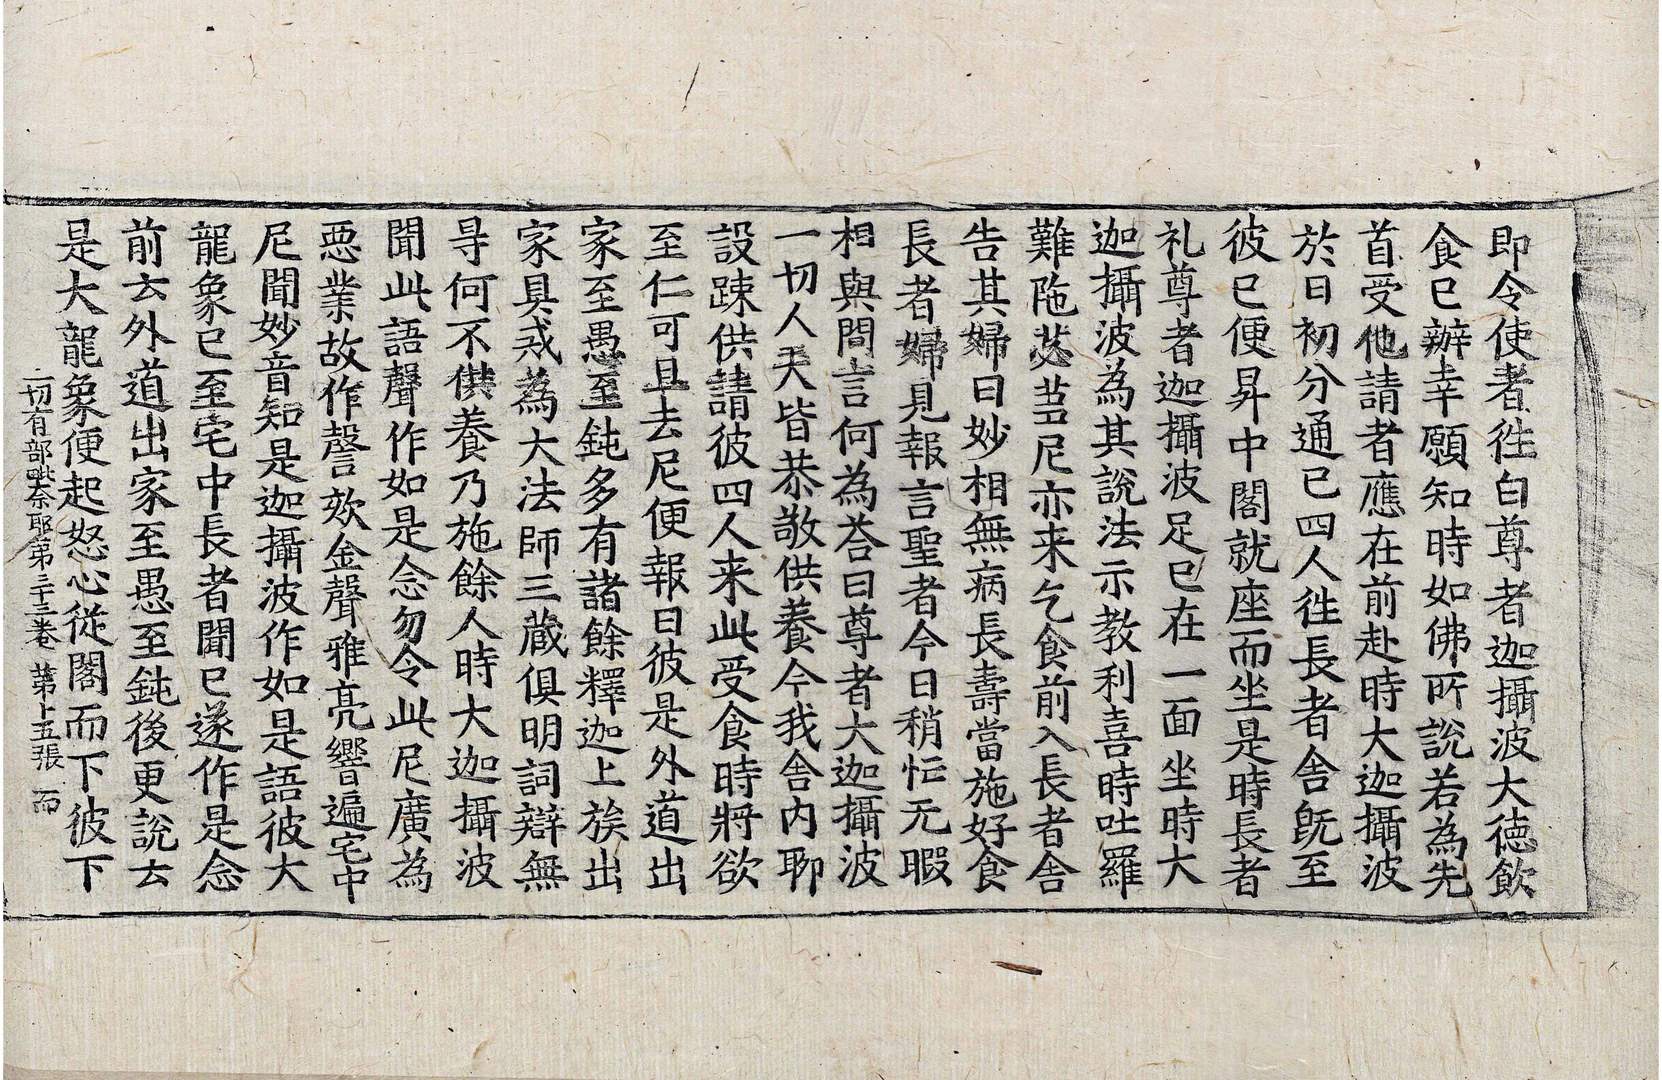 即令使者徃白尊者迦攝波大德飲
食已辦幸願知時如佛所說若為先
首受他請者應在前赴時大迦攝波
於日初分通已四人徃長者舍旣至
彼已便昇中閣就座而坐是時長者
礼尊者迦攝波足已在一面坐時大
迦攝波為其說法示教利喜時吐羅
難陁苾芻尼亦来乞食前入長者舍
告其婦曰妙相無病長壽當施好食
長者婦見報言聖者今日稍忙无暇
相與問言何為荅曰尊者大迦攝波
一切人天皆恭敬供養今我舍內聊
設踈供請彼四人来此受食時將欲
至仁可且去尼便報曰彼是外道出
家至愚至鈍多有諸餘釋迦上族出
家具戒為大法師三藏俱明詞辯無
㝵何不供養乃施餘人時大迦攝波
聞此語聲作如是念勿令此尼廣為
惡業故作謦欬金聲雅亮響遍宅中
尼聞妙音知是迦攝波作如是語彼大
龍象已至宅中長者聞已遂作是念
前云外道出家至愚至鈍後更說云
是大龍象便起怒心從閣而下彼下
一切有部毗奈耶第三十三卷 第十五張 而